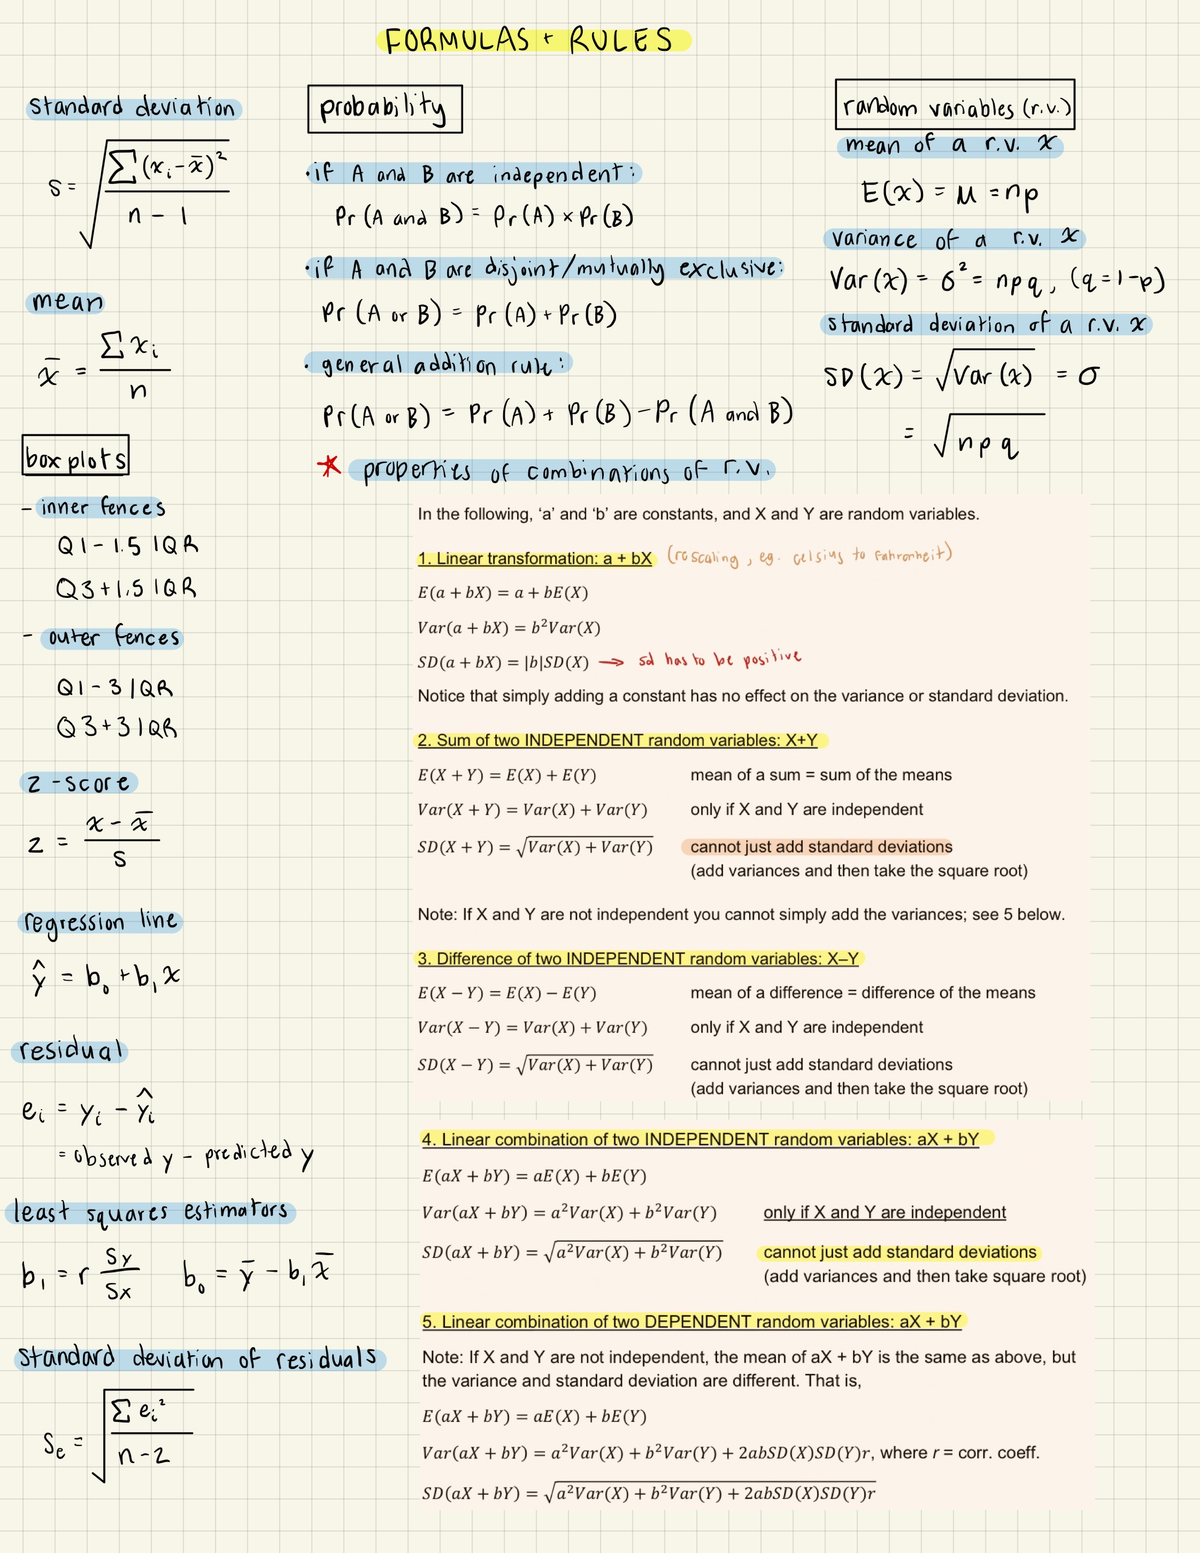 FORMULAS + RULES
standard deviation
s = √(∑(xᵢ - x̄)² / (n - 1))
mean
x̄ = ∑xᵢ / n
box plots
- inner fences
Q1 - 1.5 IQR
Q3 + 1.5 IQR
- outer fences
Q1 - 3 IQR
Q3 + 3 IQR
z-score
z = (x - x̄) / s
regression line
ŷ = b₀ + b₁x
residual
eᵢ = yᵢ - ŷᵢ
= observed y - predicted y
least squares estimators
b₁ = r sy/sx b₀ = ȳ - b₁x̄
standard deviation of residuals
Se = √(∑eᵢ² / (n-2))
probability
• if A and B are independent:
Pr (A and B) = Pr(A) × Pr(B)
• if A and B are disjoint/mutually exclusive:
Pr (A or B) = Pr(A) + Pr(B)
• general addition rule:
Pr(A or B) = Pr(A) + Pr(B) - Pr (A and B)
random variables (r.v.)
mean of a r.v. x
E(x) = μ = np
variance of a r.v. x
Var(x) = σ² = npq, (q = 1-p)
standard deviation of a r.v. x
SD(x) = √Var(x) = σ
= √npq
★ properties of combinations of r.v.
In the following, ‘a’ and ‘b’ are constants, and X and Y are random variables.
1. Linear transformation: a + bX (rescaling, eg. celsius to fahrenheit)
E(a + bX) = a + bE(X)
Var(a + bX) = b²Var(X)
SD(a + bX) = |b|SD(X) → sd has to be positive
Notice that simply adding a constant has no effect on the variance or standard deviation.
2. Sum of two INDEPENDENT random variables: X+Y
E(X + Y) = E(X) + E(Y) mean of a sum = sum of the means
Var(X + Y) = Var(X) + Var(Y) only if X and Y are independent
SD(X + Y) = √(Var(X) + Var(Y)) cannot just add standard deviations
(add variances and then take the square root)
Note: If X and Y are not independent you cannot simply add the variances; see 5 below.
3. Difference of two INDEPENDENT random variables: X–Y
E(X − Y) = E(X) − E(Y) mean of a difference = difference of the means
Var(X − Y) = Var(X) + Var(Y) only if X and Y are independent
SD(X − Y) = √(Var(X) + Var(Y)) cannot just add standard deviations
(add variances and then take the square root)
4. Linear combination of two INDEPENDENT random variables: aX + bY
E(aX + bY) = aE(X) + bE(Y)
Var(aX + bY) = a²Var(X) + b²Var(Y) only if X and Y are independent
SD(aX + bY) = √(a²Var(X) + b²Var(Y)) cannot just add standard deviations
(add variances and then take square root)
5. Linear combination of two DEPENDENT random variables: aX + bY
Note: If X and Y are not independent, the mean of aX + bY is the same as above, but
the variance and standard deviation are different. That is,
E(aX + bY) = aE(X) + bE(Y)
Var(aX + bY) = a²Var(X) + b²Var(Y) + 2abSD(X)SD(Y)r, where r = corr. coeff.
SD(aX + bY) = √(a²Var(X) + b²Var(Y) + 2abSD(X)SD(Y)r)